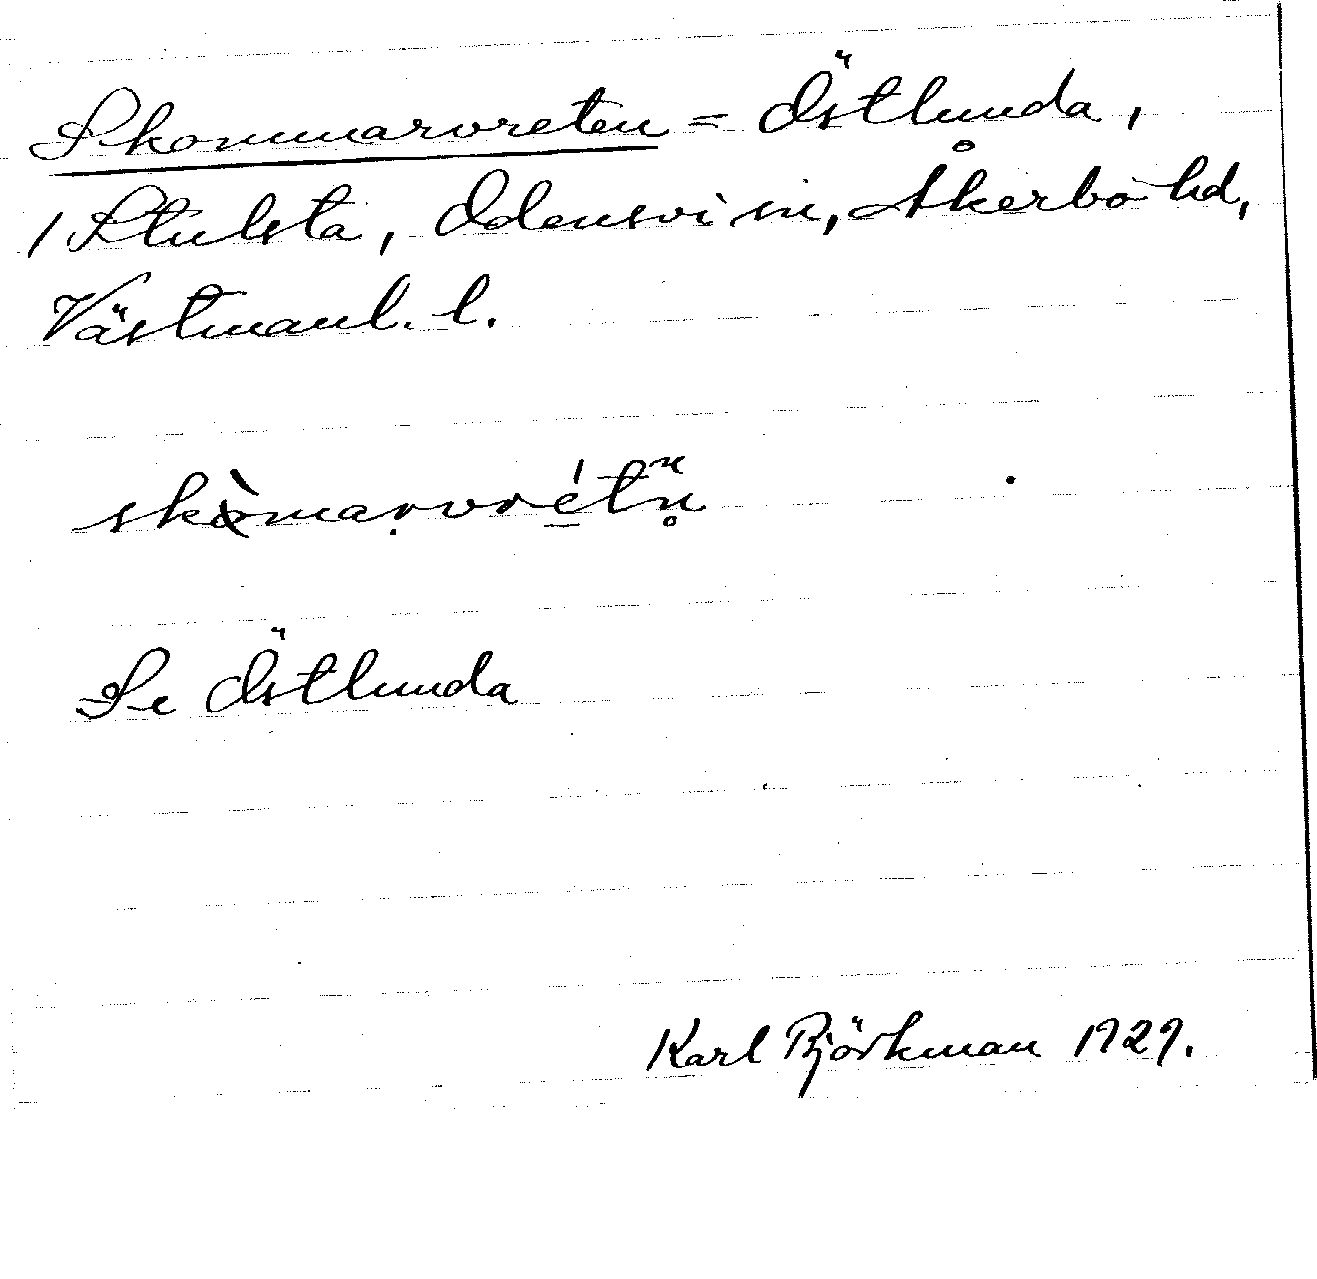 Skommarvreten = Östlunda,
/ Stulsta, Odensvi sn, Åkerbo hd,
Västmanl. l.
skòmaṛvrétn̥
Se Östlunda
Karl Björkman 1929.